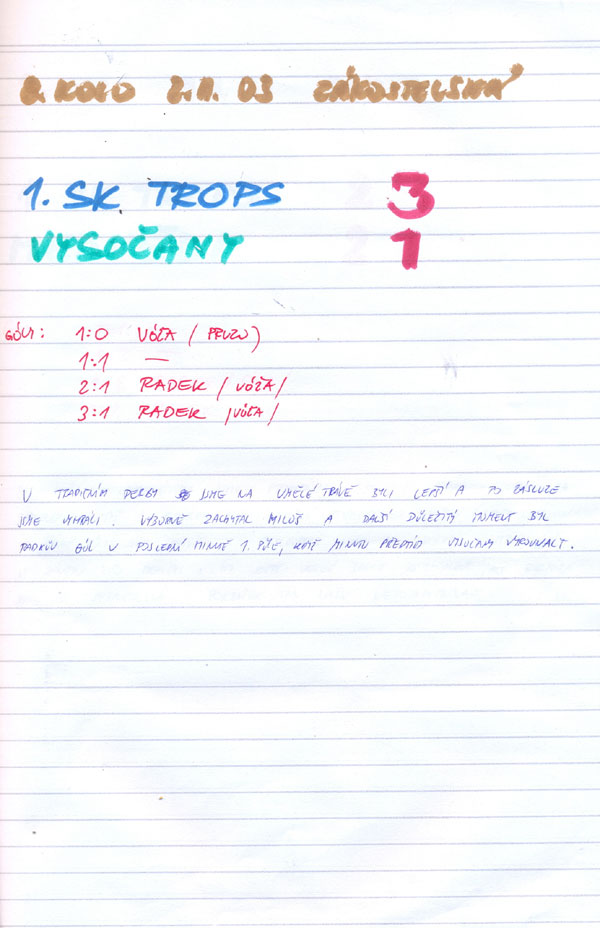 8. KOLO 2.11.03 ZÁKOSTELSKÁ
1. SK TROPS 3
VYSOČANY 1
GÓLY: 1:0 VÓŽA / PRUZU)
1:1 —
2:1 RADEK / VÓŽA /
3:1 RADEK / VÓŽA /
V TRADIČNÍM DERBY JSME NA UMĚLÉ TRÁVĚ BYLI LEPŠÍ A PO ZÁSLUZE
JSME VYHRÁLI. VÝBORNĚ ZACHYTAL MILOŠ A DALŠÍ DŮLEŽITÝ MOMENT BYL
RADKŮV GÓL V POSLEDNÍ MINUTĚ 1. PŮLE, KDYŽ MINUTU PŘEDTÍM VYSOČANY VYROVNALY.